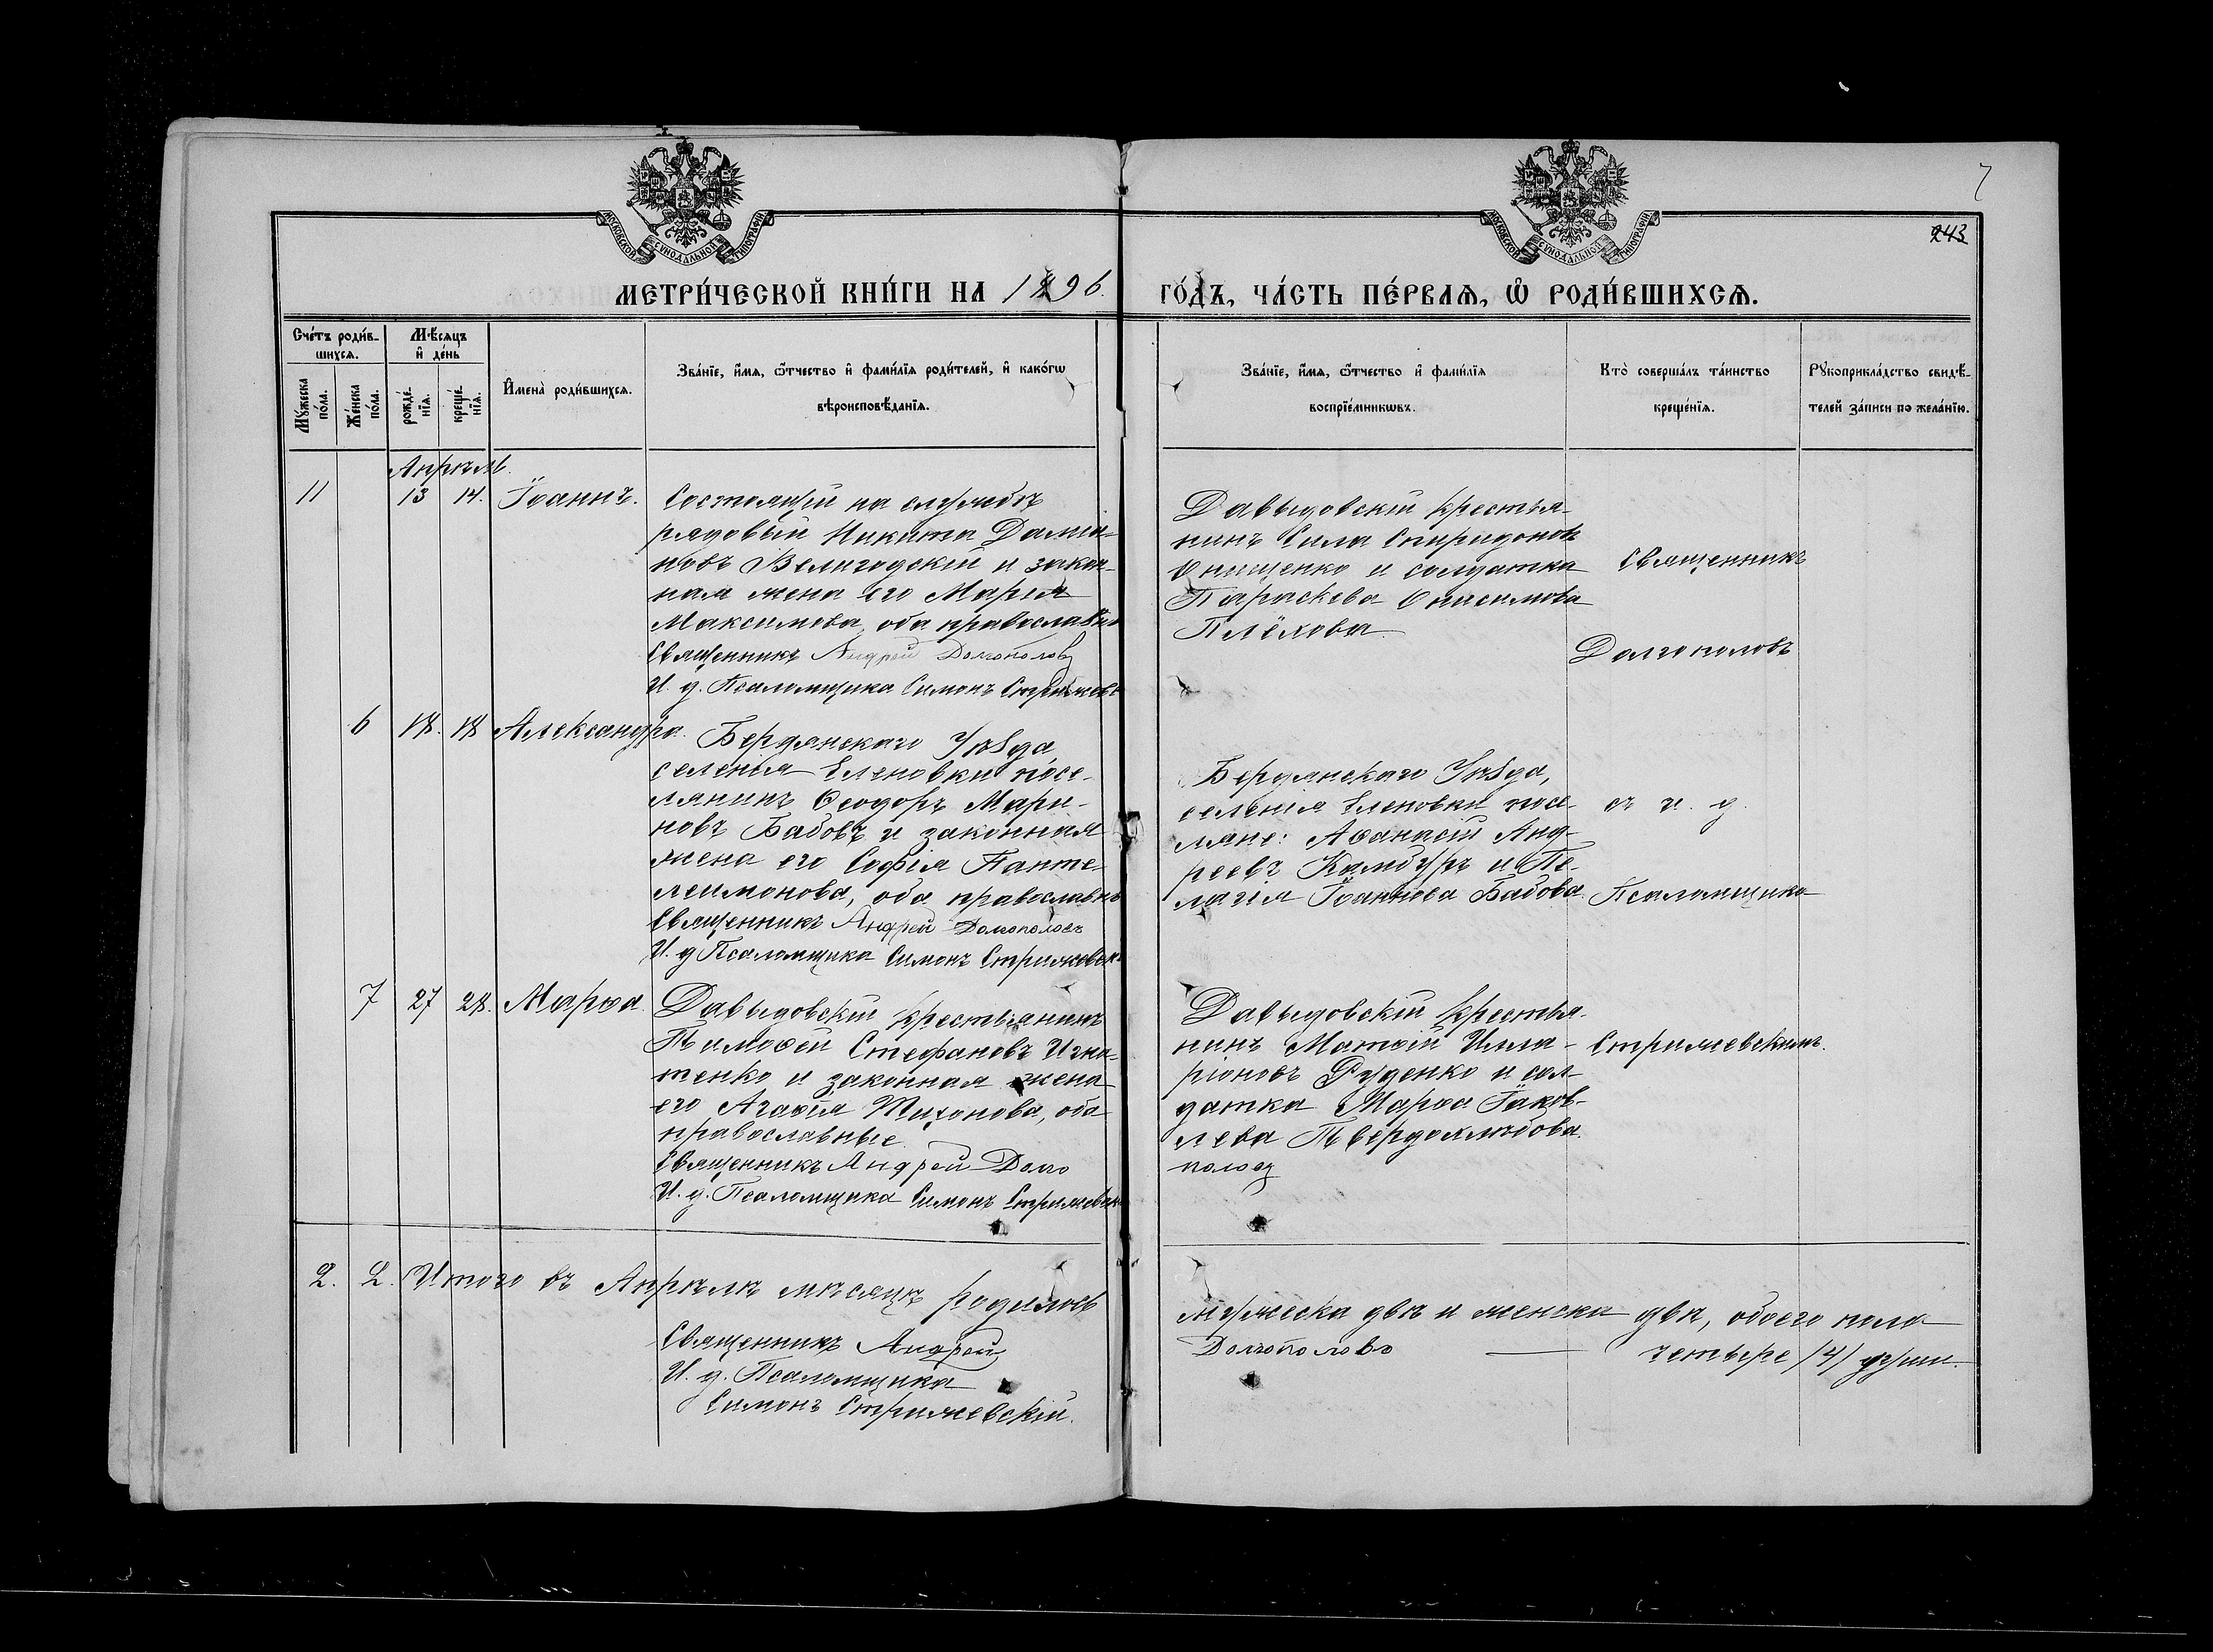 7
243
МОСКОВСКОЙ СѴНОДАЛЬНОЙ ТИПОГРАФІИ
МОСКОВСКОЙ СѴНОДАЛЬНОЙ ТИПОГРАФІИ
МЕТРИ́ЧЕСКОЙ КНИ́ГИ НА 1896.
ГО́ДЪ, ЧА́СТЬ ПЕ́РВАѦ, Ѽ РОДИ́ВШИХСѦ.
Сче́тъ роди́в-
шихсѧ.
Мѣ́сѧцъ
и҆ де́нь
Мꙋ́жеска
по́ла.
Же́нска
по́ла.
рожде́-
нїѧ.
креще́-
нїѧ.
И҆мена̀ роди́вшихсѧ.
Зва́нїе, и҆́мѧ, ѻ҆́тчество и҆ фами́лїѧ роди́телей, и҆ како́гѡ
вѣроисповѣ́данїѧ.
Зва́нїе, и҆́мѧ, ѻ҆́тчество и҆ фами́лїѧ
воспрїе́мникѡвъ.
Кто̀ соверша́лъ та́инство
креще́нїѧ.
Рꙋкоприкла́дство свидѣ́-
телей за́писи по жела́нїю.
Апрѣль.
11 13 14. Іоаннъ.
Состоящій на службѣ
рядовый Никита Даміа-
новъ Велигодскій и закон-
ная жена его Марія
Максимова, оба православн
Священникъ Андрей Долгополовъ
И. д. Псаломщика Симонъ Стрижевс
Давыдовскій крестья-
нинъ Сила Спиридоновъ
Онищенко и солдатка
Параскева Онисимова
Плёхова
Священникъ
Долгополовъ
6 18. 18 Александра.
Бердянскаго Уѣзда
селенія Еленовки посе-
лянинъ Ѳеодоръ Мари-
новъ Бабовъ и законная
жена его Софія Панте-
леимонова, оба православн
Священникъ Андрей Долгополовъ
И. д Псаломщика Симонъ Стрижевск
Бердянскаго Уѣзда,
селенія Еленовки посе-
ляне: Аѳанасій Анд-
реевъ Камбуръ и Пе-
лагія Іоаннова Бабова
съ и. д.
Псаломщика
7 27 28. Марѳа.
Давыдовскій крестьянинъ
Тимоѳей Стефановъ Игна-
тенко и законная жена
его Агаѳія Тихонова, оба
православные
Священникъ Андрей Долго
И. д. Псаломщика Симонъ Стрижевск
Давыдовскій крестья-
нинъ Матѳій Илла-
ріоновъ Руденко и сол-
датка Марѳа Іаков-
лева Твердохлѣбова.
половъ
Стрижевскимъ.
2. 2. Итого въ Апрѣлѣ мѣсяцѣ родилось
мужеска двѣ и женска двѣ, обоего пола
четыре /4/ души.
Священникъ Андрей
Долгополовъ
И. д. Псаломщика
Симонъ Стрижевскій.